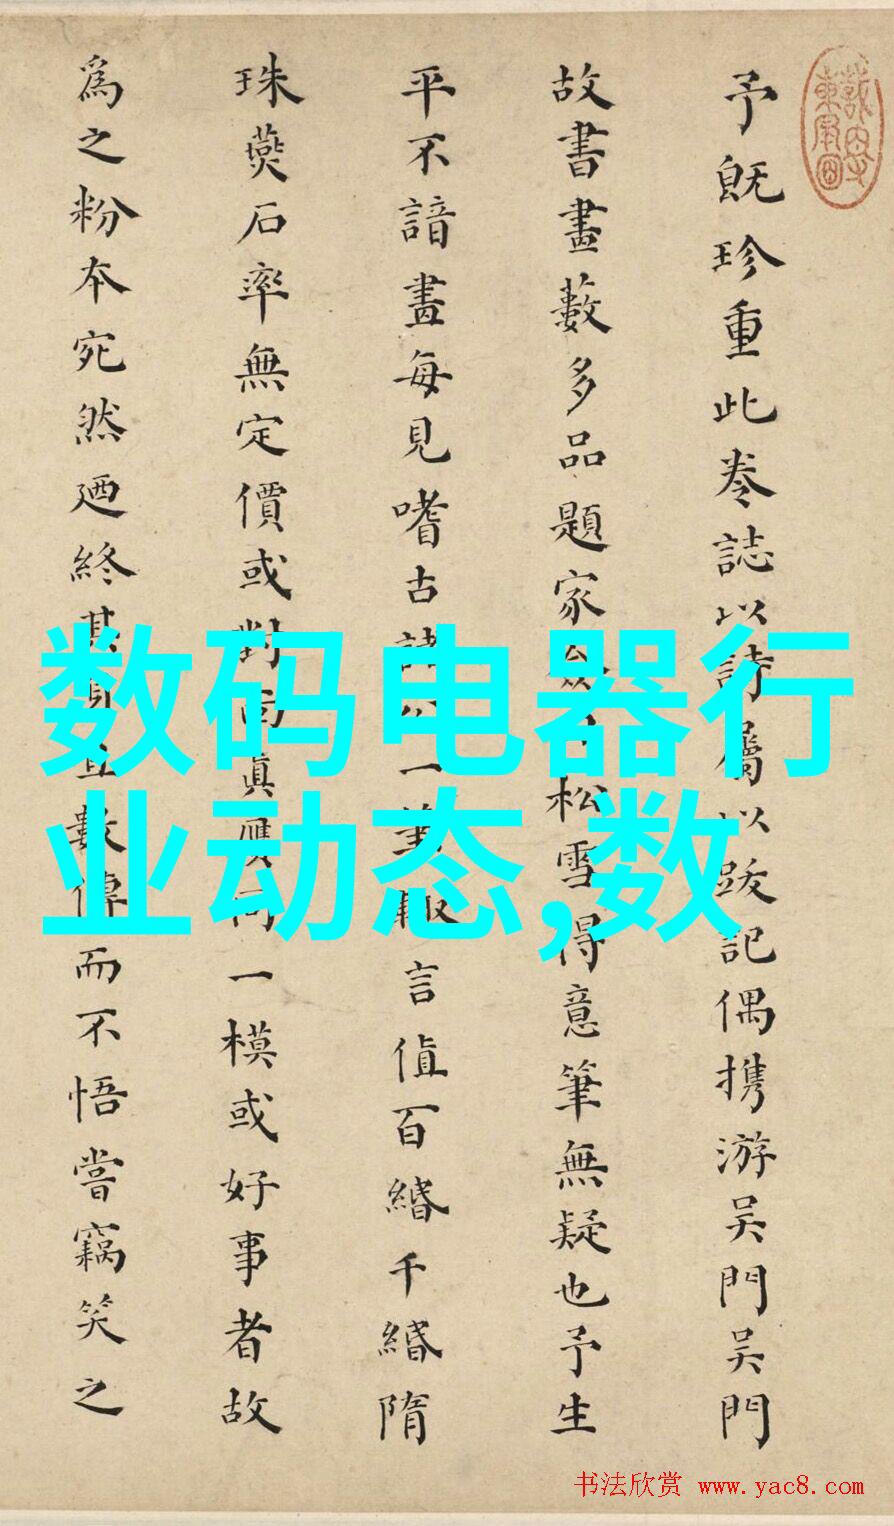 予既珍重此卷誌以詩屬以跋記偶携游吳門吳門
故書畫藪多品題家僉松雪得意筆無疑也予生
平不諳畫每見嗜古諸一筆輒言値百緡千緡隋
珠燕石率無定價或對面眞贗同一模或好事者故
為之粉本宛然迺終其數傳而不悟嘗竊笑之
数码电器行
业动态,数
书法欣赏 www.yac8.com